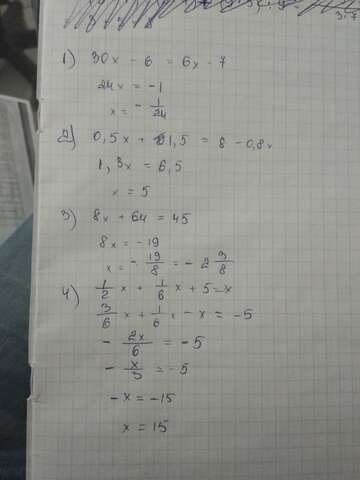 1) 30x - 6 = 6x - 7
24x = -1
x = - 1/24
2) 0,5x + 1,5 = 8 - 0,8x
1,3x = 6,5
x = 5
3) 8x + 64 = 45
8x = -19
x = - 19/8 = - 2 3/8
4) 1/2 x + 1/6 x + 5 = x
3/6 x + 1/6 x - x = -5
- 2x/6 = -5
- x/3 = -5
-x = -15
x = 15